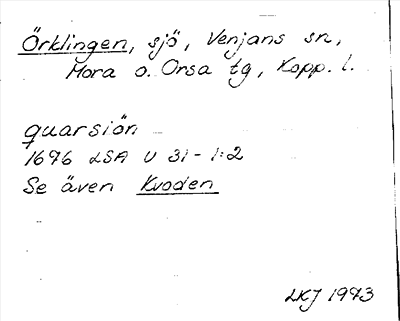 Örklingen, sjö, Venjans sn,
Mora o. Orsa tg, Kopp. l.
quarsiön
1696 LSA U 31-1:2
Se även Kvoden
LKJ 1973